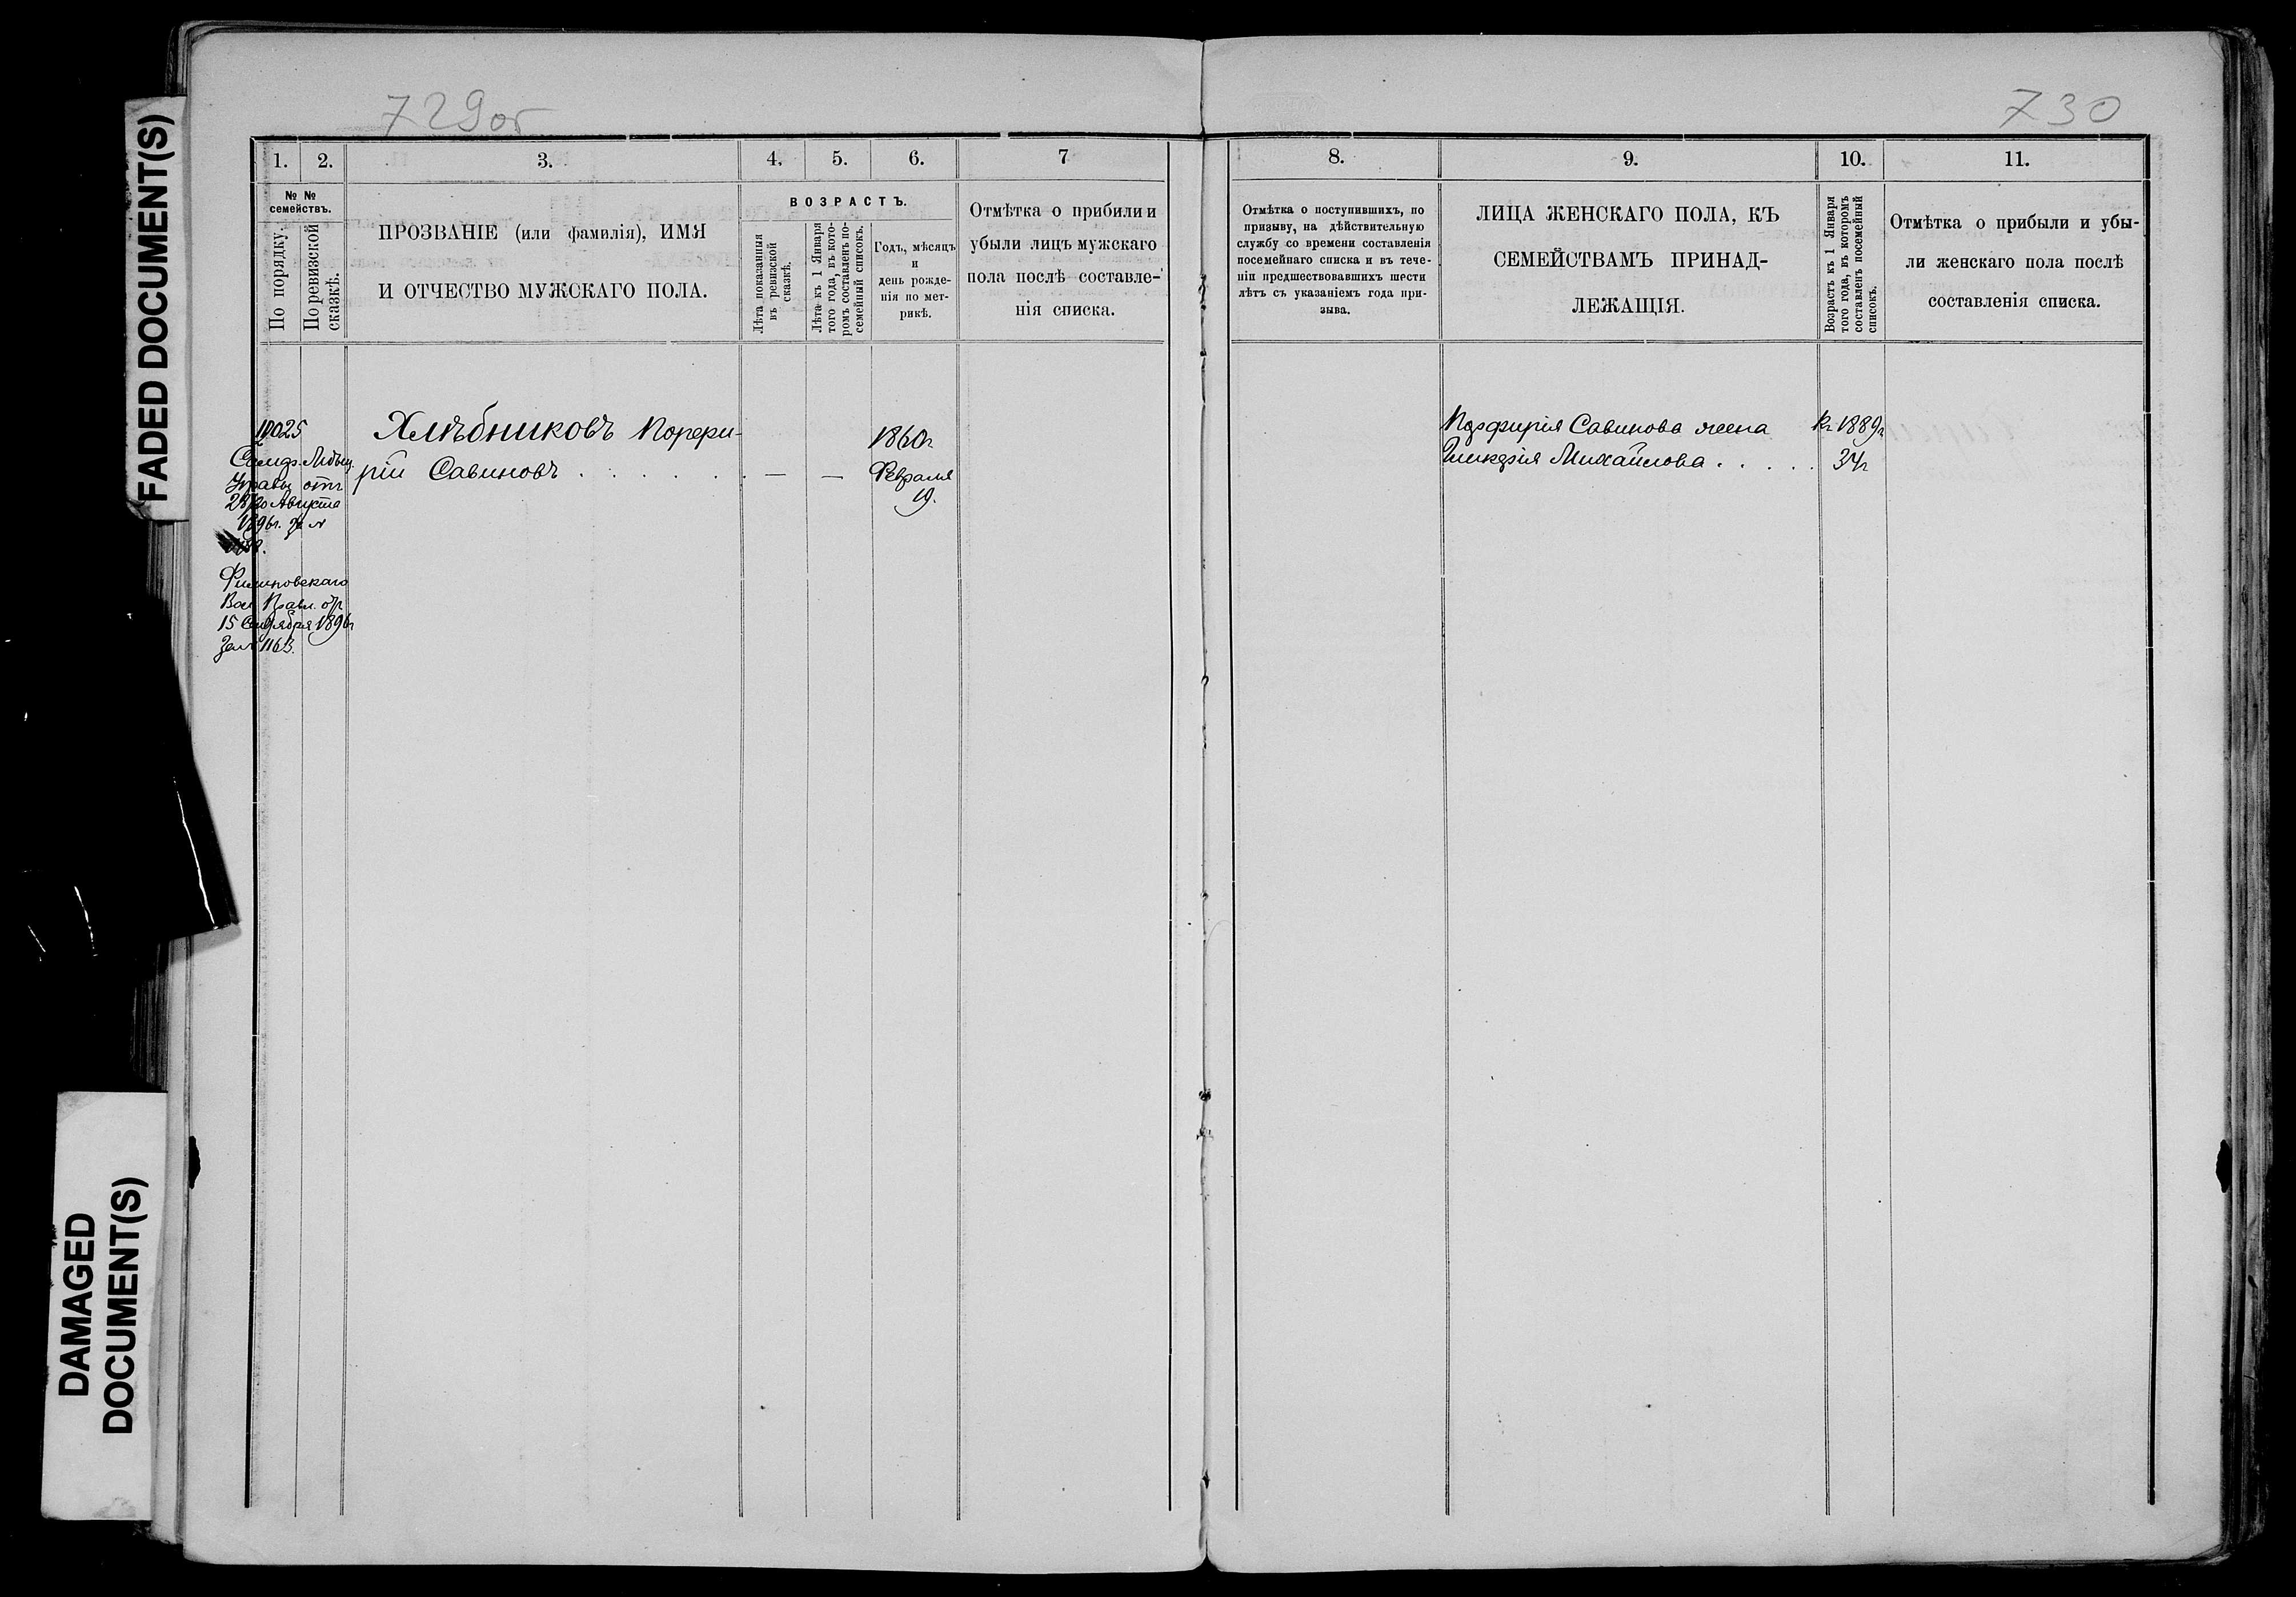 FADED DOCUMENT(S)
DAMAGED
DOCUMENT(S)
729об
1.
2.
3.
4.
5.
6.
7
№ №
семействъ.
По порядку.
По ревизской
сказкѣ.
ПРОЗВАНІЕ (или фамилія), ИМЯ
И ОТЧЕСТВО МУЖСКАГО ПОЛА.
ВОЗРАСТЪ.
Лѣта показанныя
въ ревизской
сказкѣ.
Лѣта къ 1 Января
того года, въ кото-
ромъ составленъ по-
семейный списокъ.
Годъ, мѣсяцъ
и
день рожде-
нія по мет-
рикѣ.
Отмѣтка о прибили и
убыли лицъ мужскаго
пола послѣ составле-
нія списка.
1025
Хлѣбниковъ Порфи-
рій Савиновъ . . . . . . . — —
1860г
Февраля
19.
Управы отъ
Августа
1896г. за №
Вол. Правл. отъ
15 Сентября 1896г
за № 1163.
730
8.
9.
10.
11.
Отмѣтка о поступившихъ, по
призыву, на дѣйствительную
службу со времени составленія
посемейнаго списка и въ тече-
ніи предшествовавшихъ шести
лѣтъ съ указаніемъ года при-
зыва.
ЛИЦА ЖЕНСКАГО ПОЛА, КЪ
СЕМЕЙСТВАМЪ ПРИНАД-
ЛЕЖАЩІЯ.
Возрастъ къ 1 Января
того года, въ которомъ
составленъ посемейный
списокъ.
Отмѣтка о прибыли и убы-
ли женскаго пола послѣ
составленія списка.
Порфирія Савинова жена
Гликерія Михайлова . . . . .
Къ 1889г
34г